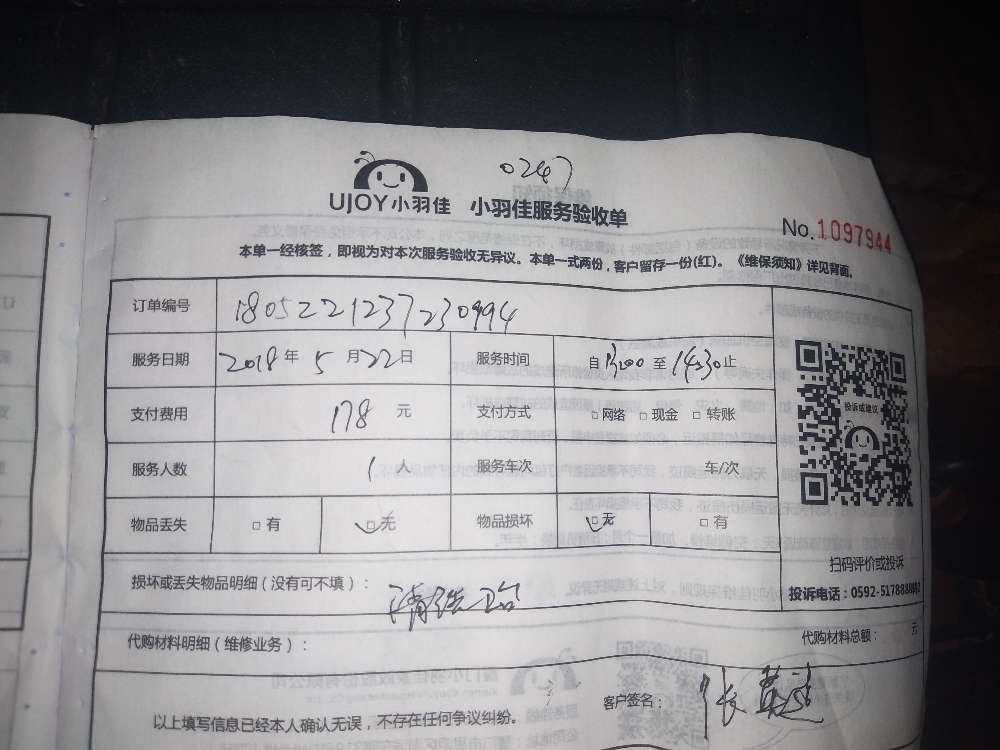 0247
UJOY小羽佳 小羽佳服务验收单
No.1097944
本单一经核签，即视为对本次服务验收无异议。本单一式两份，客户留存一份(红)。《维保须知》详见背面。
订单编号 1805221237230994
服务日期 2018年5月22日 服务时间 自1300至1430止
支付费用 178元 支付方式 □网络 □现金 □转账
服务人数 1人 服务车次 车/次
物品丢失 □有 □无 物品损坏 □无 □有
投诉或建议
扫码评价或投诉
投诉电话：0592-5178888
损坏或丢失物品明细（没有可不填）：
代购材料明细（维修业务）： 代购材料总额： 元
以上填写信息已经本人确认无误，不存在任何争议纠纷。 客户签名： 张